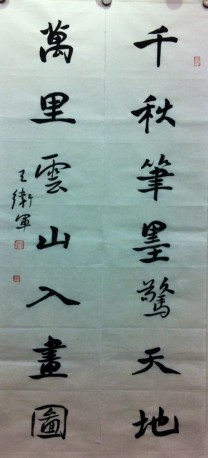 千秋筆墨驚天地
萬里雲山入畫圖
王衛軍